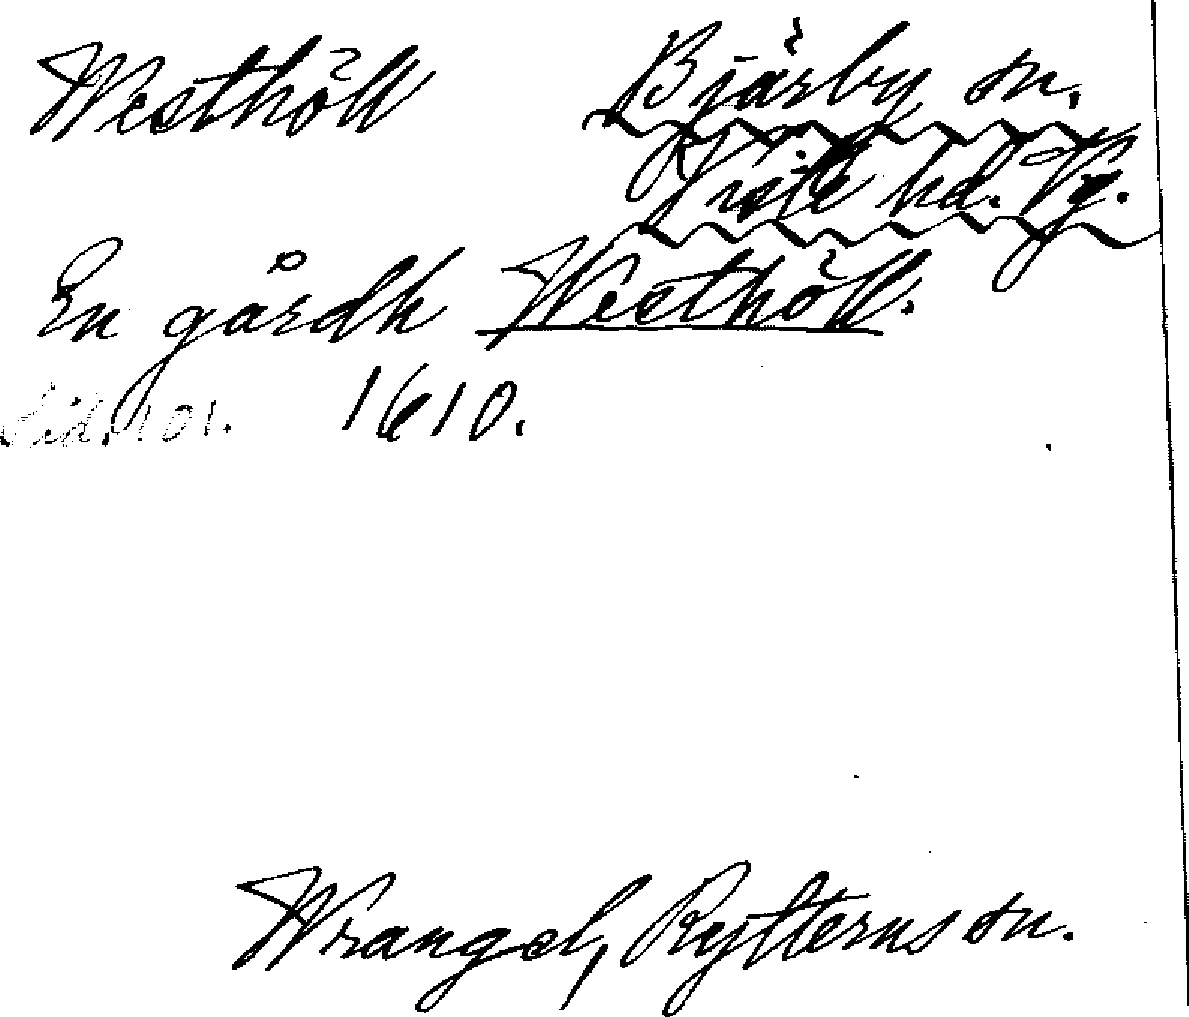 Westhöll Bjärby sn.
Viste hd. Vg.
En gårdh Westhöll.
Sid. 101. 1610.
Wrangel, Rytterns sn.